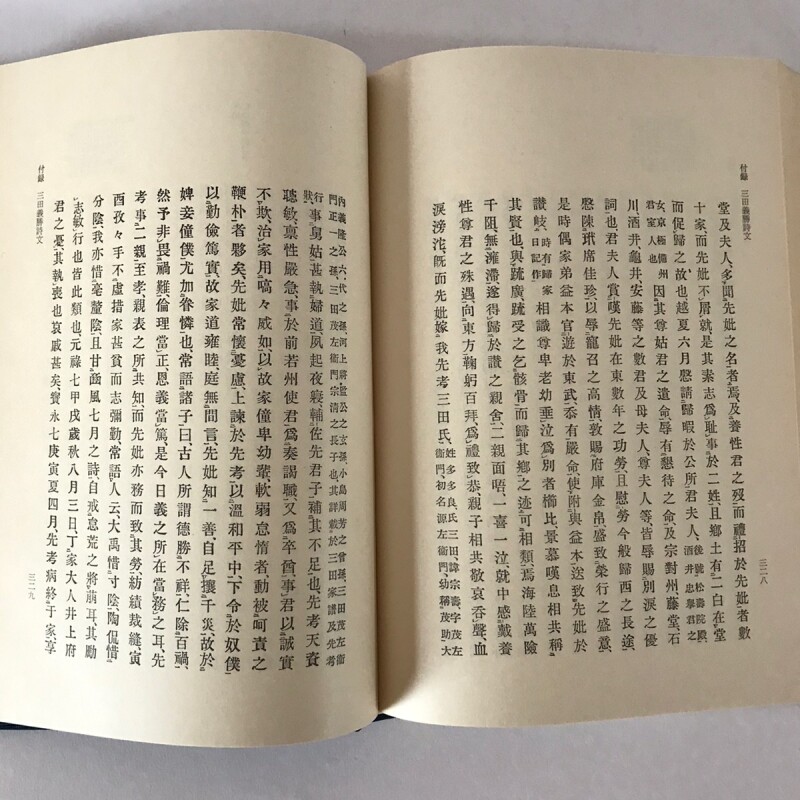 付録 三田義勝詩文
三二八
堂及夫人、多聞先妣之名者焉、及養性君之歿而禮招於先妣者數
十家、而先妣不屑就是其素志爲恥事於二姓、且鄕土有二白在堂
而促歸之故也、越夏六月懇請歸暇於公所、君夫人、後號松壽院殿、酒井忠擧君之
女、京極備州君室人也 因其尊姑君之遺命、辱有懇待之命、及宗對州藤堂石
川酒井龜井安藤等之數君及母夫人、尊夫人等、皆辱賜別涙之優
詞也、君夫人賞嘆先妣在東數年之功勞、且慰勞今般歸西之長途、
慇陳玳席佳珍、以辱寵召之高情、敦賜府庫金帛、盛致榮行之盛意、
是時偶家弟益本官遊於東武、忝有嚴命、使附與益本送致先妣於
讃岐、時有歸家日記作 相識尊卑老幼垂泣爲別者櫛比、景慕嘆息相共稱
其賢也、與疏廣、疏受之乞骸骨而歸其鄕之迹可相類焉、海陸萬險
千阻、無滯遂得歸於讃之親舍、二親面唔、一喜一泣、就中感戴養
性尊君之殊遇、向東方鞠躬百拜、爲禮致恭、親子相共敬哀呑聲、血
涙滂沱、既而先妣嫁我先考三田氏、姓多多良、氏三田、諱宗壽、字茂左衞門、初名源左衞門、幼稱茂助、大
內義隆公六代之孫、河上將監公之玄孫、小島周芳之曾孫、三田茂左衞門正一之孫、三田茂左衞門宗清之長子也、其詳載於三田家譜及先考
行狀、事舅姑甚執婦道、夙起夜寢、輔佐先君子補其不足也、先考天資
聰敏、稟性嚴急、事於前若州使君爲奏謁職、又爲卒酋、事君以誠實
不欺、治家用嗃々威如、以故家僮卑幼輩、軟弱怠惰者、動被呵責之
鞭朴者夥矣、先妣常懷憂慮、上諫於先考以溫和平中、下令於奴僕
以勤儉篤實、故家道雍睦、庭無間言、先妣知一善自足攘千災、故於
婢妾僮僕尤加眷憐也、常語諸子曰、古人所謂德勝不祥、仁除百禍、
然予非畏禍難、倫理當正、恩義當篤、是今日義之所在當務之耳、先
考事二親至孝、親表之所共知、而先妣亦務而致其勞、紡績裁縫、寅
酉孜々手不虛措、家甚貧而志彌勤、常語人云、大禹惜寸陰、陶侃惜
分陰、我亦惜毫釐陰、且甘豳風七月之詩、自戒怠荒之將萠耳、其勵
志敏行也皆此類也、元祿七甲戌歲秋八月三日、丁家大人井上府
君之憂、其執喪也哀戚甚矣、寶永七庚寅夏四月先考病終于家、享
付録 三田義勝詩文
三二九